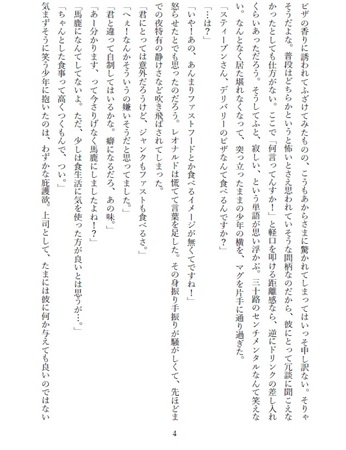 ピザの香りに誘われてふざけてみたものの、こうもあからさまに驚かれてしまってはいっそ申し訳ない。そりゃ
そうだよな。普段はどちらかというと怖いとさえ思われていそうな間柄なのだから、彼にとって冗談に聞こえな
かったとしても仕方がない。ここで「何言ってんすか！」と軽口を叩ける距離感なら、逆にドリンクの差し入れ
くらいあっただろう。そうしてふと、寂しい、という単語が思い浮かぶ。三十路のセンチメンタルなんて笑えな
い。なんとなく居た堪れなくなって、突っ立ったままの少年の横を、マグを片手に通り過ぎた。
「スティーブンさん、デリバリーのピザなんて食べるんですか？」
「…は？」
「いや！あの、あんまりファストフードとか食べるイメージが無くてですね！」
怒らせたとでも思ったのだろう。レオナルドは慌てて言葉を足した。その身振り手振りが騒がしくて、先ほどま
での夜特有の静けさなど吹き飛ばされてしまった。
「君にとっては意外だろうけど、ジャンクもファストも食べるさ。」
「へぇ！なんかそういうの嫌いそうだと思ってました。」
「君と違って自制してはいるがな。癖になるだろ、あの味。」
「あー分かります、って今さりげなく馬鹿にしましたよね！？」
「馬鹿になんてしてないよ。ただ、少しは食生活に気を使った方が良いとは思うが…。」
「ちゃんとした食事って高くつくもんで、つい。」
気まずそうに笑う少年に抱いたのは、わずかな庇護欲。上司として、たまには彼に何か与えても良いのではない
4